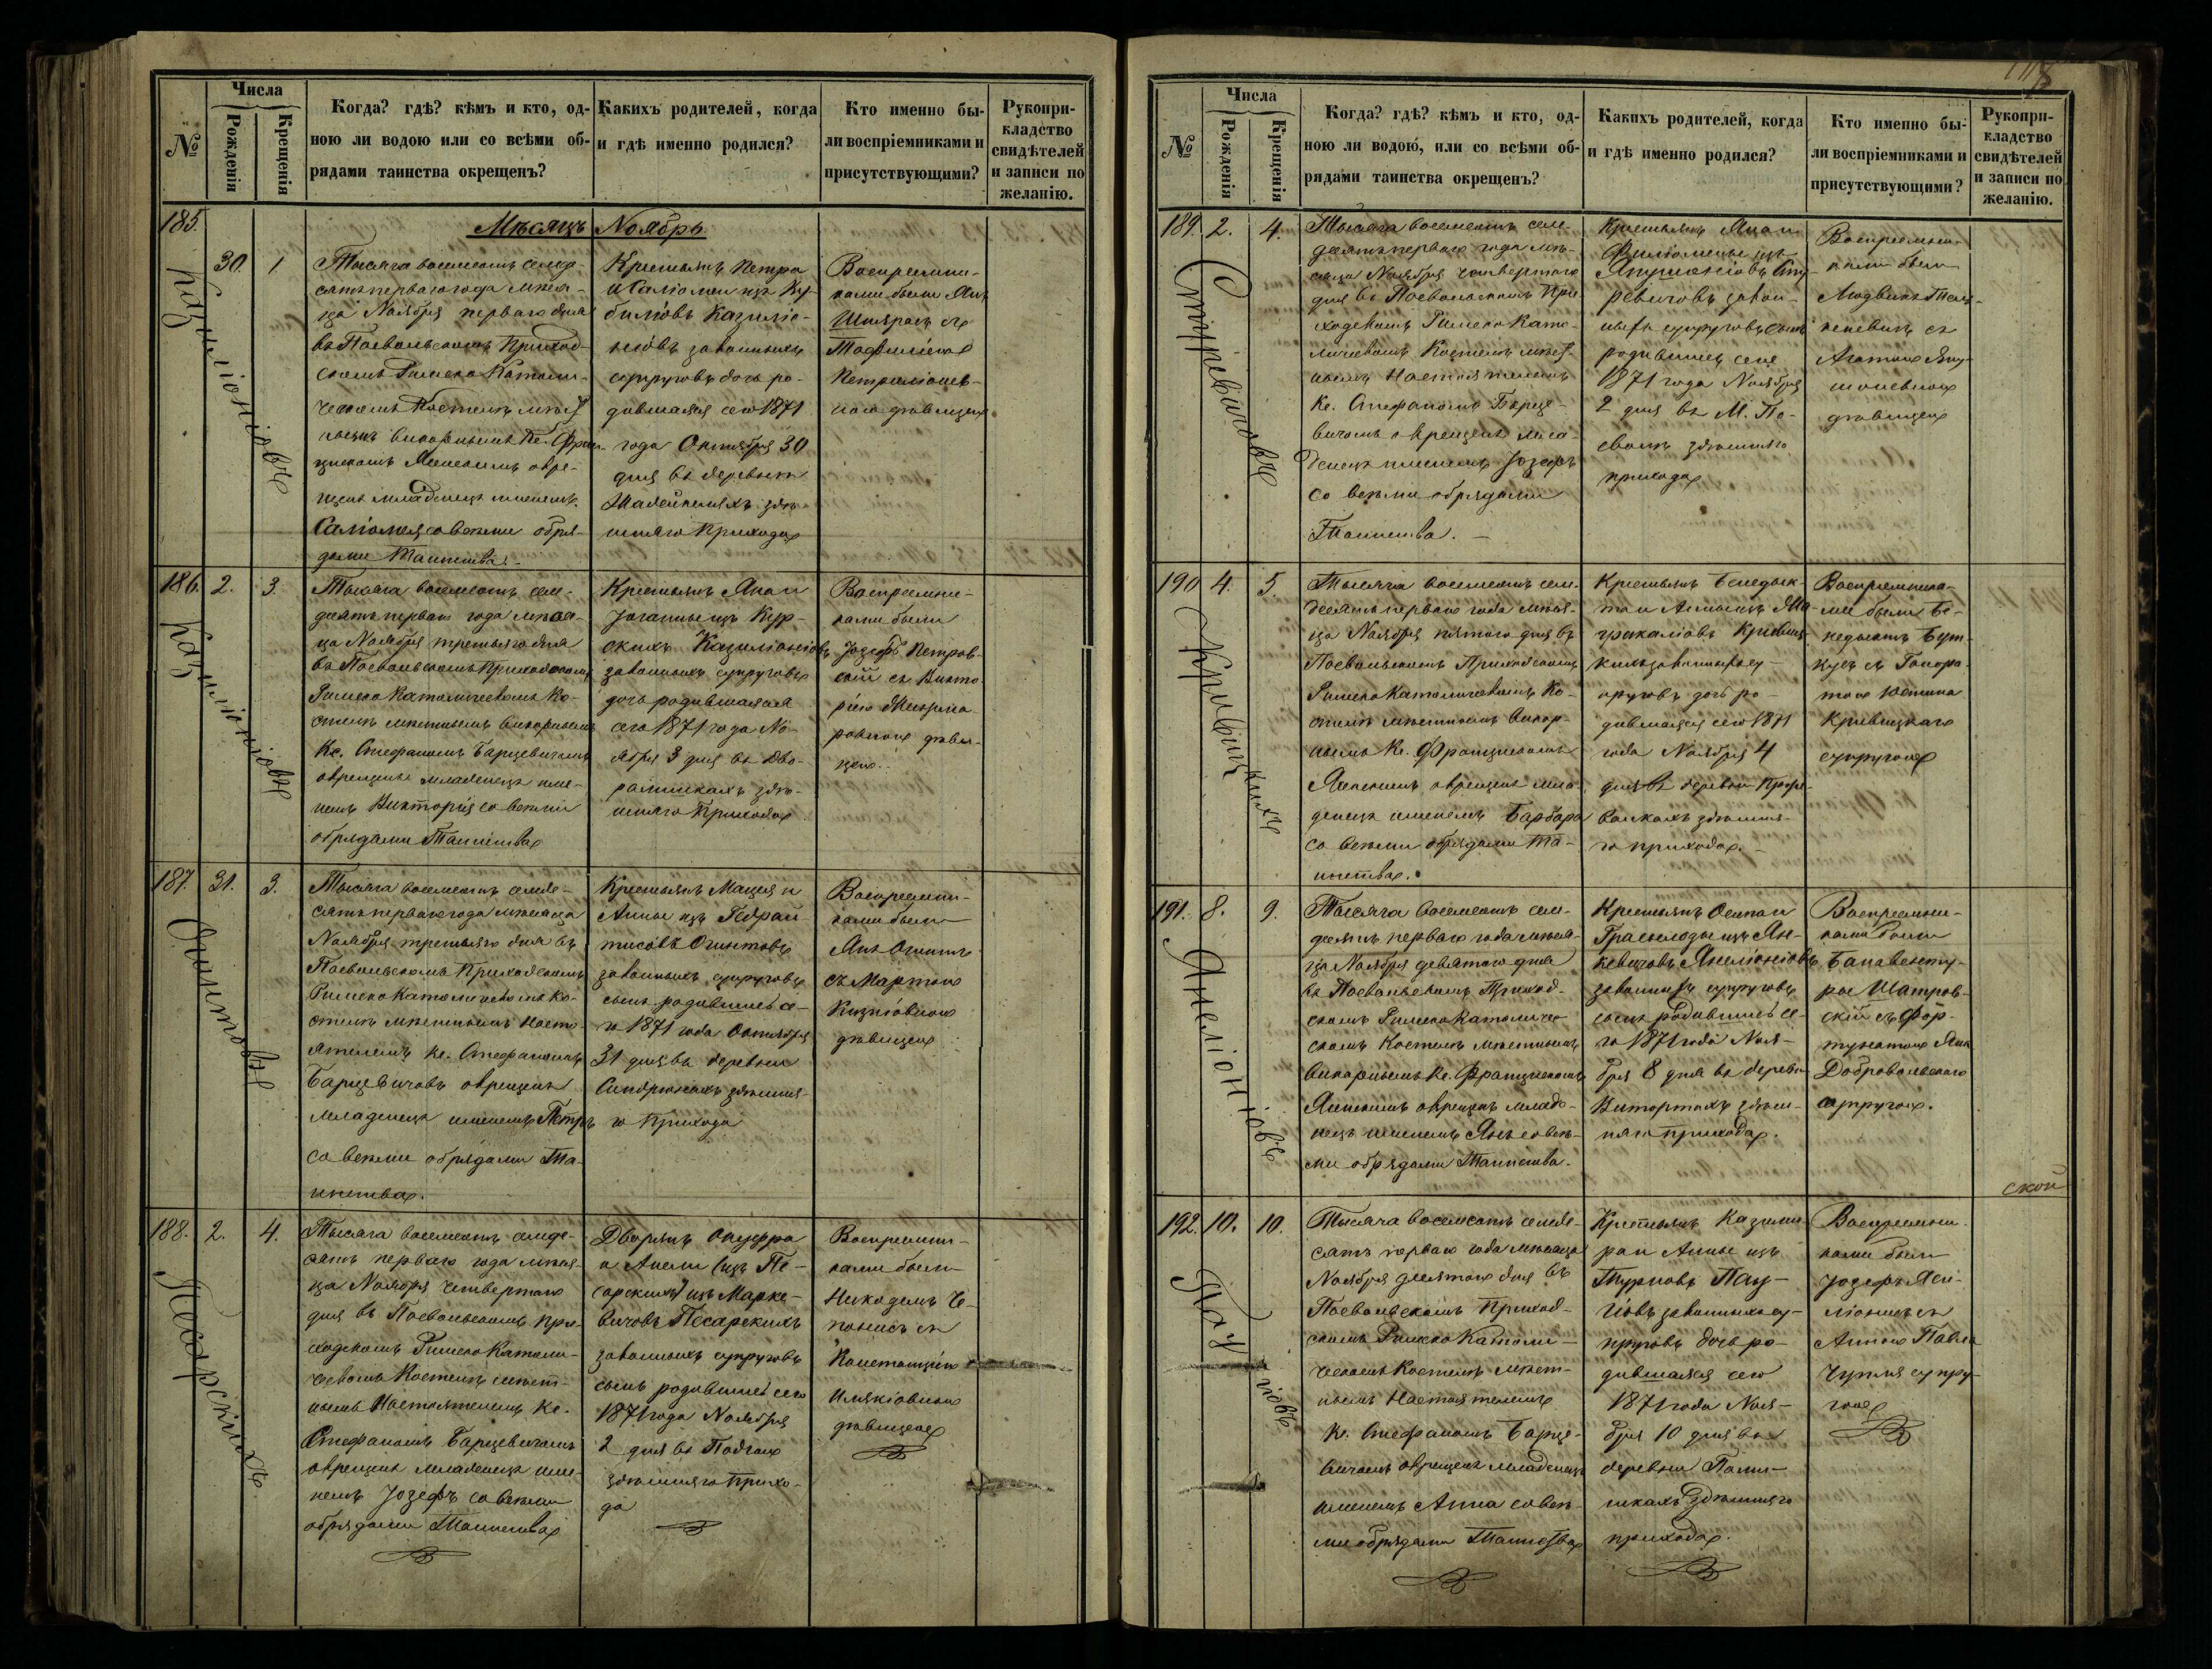 №
Числа
Рожденія
Крещенія
Когда? гдѣ? кѣмъ и кто, од-
ною ли водою или со всѣми об-
рядами таинства окрещенъ?
Какихъ родителей, когда
и гдѣ именно родился?
Кто именно бы-
ли воспріемниками и
присутствующими?
Рукопри-
кладство
свидѣтелей
и записи по
желанію.
Мѣсяцъ Ноябрь
185.
30.
1
Тысяча восемсотъ семде-
сятъ перваго года мѣся-
ца Ноября перваго дня
въ Поевольскомъ Приход-
скомъ Римско Католи-
ческомъ Костелѣ мѣст-
нымъ викарнымъ Кс. Фран-
цискомъ окре-
щенъ младенецъ именемъ
Саліомея со всѣми обря-
дами Таинства.
Крестьянъ Петра
и Саліомеи изъ Ку-
биліовъ Казиліо-
ніовъ законныхъ
супруговъ дочь ро-
дившаяся сего 1871
года Октября 30
дня въ деревнѣ
здѣ-
шняго Прихода
Воспреемни-
ками были Янъ
съ
дѣвицею
186.
2.
3.
Тысяча восемсотъ сем-
десятъ перваго года мѣся-
ца Ноября третьяго дня
въ Поевольскомъ Приходскомъ
Римско Католическомъ Ко-
стелѣ мѣстнымъ викарнымъ
Кс. Стефаномъ Барцевичемъ
окрещенъ младенецъ име-
немъ Викторія со всѣми
обрядами Таинства
Крестьянъ Яна и
Іоганны изъ Кур-
скихъ
законныхъ супруговъ
дочь родившаяся
сего 1871 года Но-
ября 3 дня въ Дво-
здѣ-
шняго Прихода
Воспреемни-
ками были
Іозефъ Петров-
скій съ Викто-
ріею
дѣви-
цею.
187.
31.
3.
Огинтовъ
Тысяча восемсотъ семде-
сятъ перваго года мѣсяца
Ноября третьяго дня въ
Поевольскомъ Приходскомъ
Римско Католическомъ Ко-
стелѣ мѣстнымъ Насто-
ятелемъ Кс. Стефаномъ
Барцевичовъ окрещенъ
младенецъ именемъ Петръ
со всѣми обрядами Та-
инства.
Крестьянъ Мацея и
Анны изъ Гедрай-
тисовъ Огинтовъ
законныхъ супруговъ
сынъ родившійся се-
го 1871 года Октября
31 дня въ деревни
здѣшня-
го Прихода
Воспреемни-
ками были
Янъ Огинтъ
съ Мартою
дѣвицею
188.
2.
4.
Песарскихъ
Тысяча восемсотъ семде-
сятъ перваго года мѣся-
ца Ноября четвертаго
дня въ Поевольскомъ При-
ходскомъ Римско Католи-
ческомъ Костелѣ мѣст-
нымъ Настоятелемъ Кс.
Стефаномъ Барцевичемъ
окрещенъ младенецъ име-
немъ Іозефъ со всѣми
обрядами Таинства
Дворянъ Онуфра
и Анели (изъ Пе-
сарскихъ) изъ Марке-
вичовъ Песарскихъ
законныхъ супруговъ
сынъ родившійся сего
1871 года Ноября
2 дня въ
здѣшняго Прихо-
да
Воспреемни-
ками были
Никодемъ Че-
понисъ съ
Констанціею
дѣвицею
№
Числа
Рожденія
Крещенія
Когда? гдѣ? кѣмъ и кто, од-
ною ли водою, или со всѣми об-
рядами таинства окрещенъ?
Какихъ родителей, когда
и гдѣ именно родился?
Кто именно бы-
ли воспріемниками и
присутствующими?
Рукопри-
кладство
свидѣтелей
и записи по
желанію.
189.
2.
4.
Стуревичовъ
Тысяча восемсотъ сем-
десятъ перваго года мѣ-
сяца Ноября четвертаго
дня въ Поевольскомъ При-
ходскомъ Римско Като-
лическомъ Костелѣ мѣст-
нымъ Настоятелемъ
Кс. Стефаномъ Барце-
вичемъ окрещенъ мла-
денецъ именемъ Іозефъ
со всѣми обрядами
Таинства.
Крестьянъ Яна и
изъ
Сту-
ревичовъ закон-
ныхъ супруговъ сынъ
родившійся сего
1871 года Ноября
2 дня въ М. По-
еволь здѣшняго
прихода
Воспреемни-
ками были
Людвикъ
съ
Агатою
дѣвицею
190
4.
5.
Кривицкихъ
Тысяча восемсотъ сем-
десятъ перваго года мѣся-
ца Ноября пятаго дня въ
Поевольскомъ Приходскомъ
Римско Католическомъ Ко-
стелѣ мѣстнымъ викар-
нымъ Кс. Францискомъ
окрещенъ мла-
денецъ именемъ Барбара
со всѣми обрядами Та-
инства.
Крестьянъ Бенедык-
та и Анны изъ Ма-
Кривиц-
кихъ законныхъ су-
пруговъ дочь ро-
дившаяся сего 1871
года Ноября 4
дня въ деревни
здѣшня-
го прихода.
Воспреемника-
ми были Бе-
недыктъ Бут-
кусъ съ Гонора-
тою Юстина
Кривицкаго
супругою
191.
8.
9.
Тысяча восемсотъ сем-
десятъ перваго года мѣся-
ца Ноября девятаго дня
въ Поевольскомъ Приход-
скомъ Римско Католиче-
скомъ Костелѣ мѣстнымъ
Викарнымъ Кс. Францискомъ
окрещенъ младе-
нецъ именемъ Янъ со всѣ-
ми обрядами Таинства.
Крестьянъ Осипа и
изъ Ян-
кевичовъ
законныхъ супруговъ
сынъ родившійся се-
го 1871 года Ноя-
бря 8 дня въ деревн.
здѣш-
няго прихода.
Воспреемни-
ками были
Банавенту-
ра Шатров-
скій съ Фор-
тунатою Яна
Добровольскаго
супругою.
ской
192.
10.
10.
Тысяча восемсотъ семде-
сятъ перваго года мѣсяца
Ноября десятаго дня въ
Поевольскомъ Приход-
скомъ Римско Католи-
ческомъ Костелѣ мѣст-
нымъ Настоятелемъ
Кс. Стефаномъ Барце-
вичемъ окрещенъ младенецъ
именемъ Анна со всѣ-
ми обрядами Таинства
Крестьянъ Казими-
ра и Анны изъ
законныхъ су-
пруговъ дочь ро-
дившаяся сего
1871 года Ноя-
бря 10 дня въ
деревни
здѣшняго
прихода.
Воспреемни-
ками были
Іозефъ
съ
Анною Павла
супру-
гою